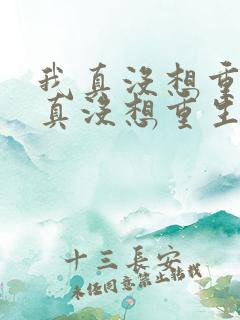 我真没想重
真没想重生
十三長安
未经同意禁止转载